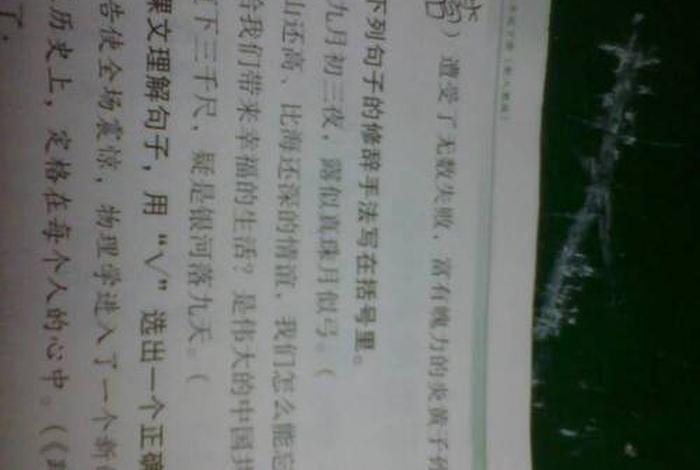 ）遭受了无数失败，富有魄力的炎黄子
下列句子的修辞手法写在括号里。
九月初三夜，露似真珠月似弓。（
山还高、比海还深的情谊，我们怎么能忘
给我们带来幸福的生活？是伟大的中国共
下三千尺，疑是银河落九天。（
课文理解句子，用“√”选出一个正确
告使全场震惊，物理学进入了一个新
历史上，定格在每个人的心中。（《
了